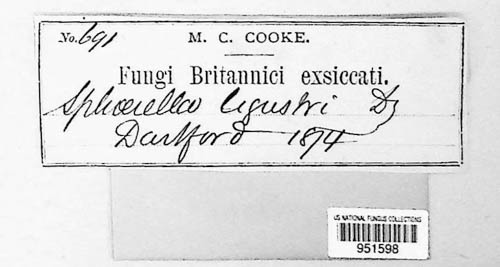 No. 691 M. C. COOKE.
Fungi Britannici exsiccati.
Sphaerella ligustri
Dartford 1874
US NATIONAL FUNGUS COLLECTIONS
951598